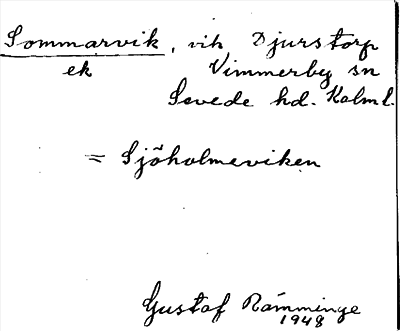 Sommarvik, vik Djurstorp
ek Vimmerby sn
Sevede hd. Kalm l.
= Sjöholmeviken
Gustaf Ramminge
1948